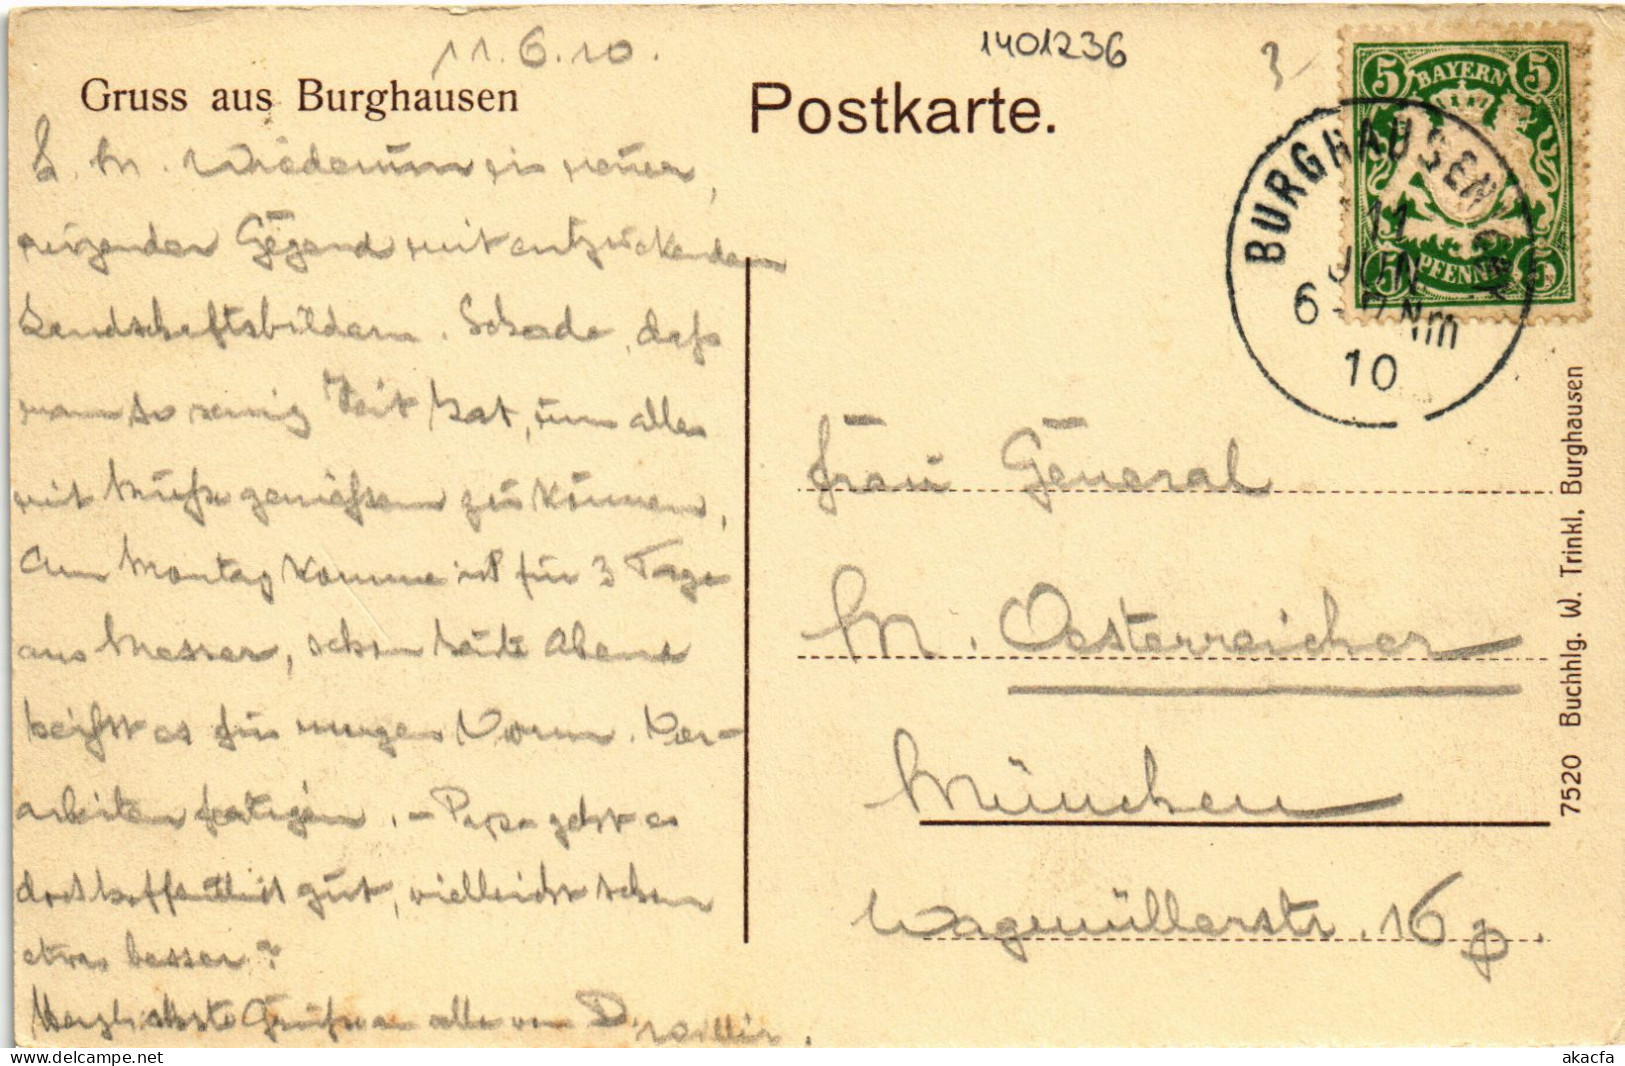 11.6.10.
1401236
3
Gruss aus Burghausen
Postkarte.
5 BAYERN 5
5 PFENNIG 5
BURGHAUSEN
11
JUN
6-7 Nm
10
L. M. Wiederum in neuer,
reizender Gegend mit entzückenden
Landschaftsbildern. Schade, daß
man so wenig Zeit hat, um alles
mit Muße genießen zu können,
Am Montag komme ich für 3 Tage
aus Messer, schon heute Abend
heißt es für morgen Vorm. Vor-
arbeiten fertigen. – Papa geht es
doch hoffentlich gut, vielleicht schon
etwas besser?
Herzlichste Grüße an alle von D.
Frau General
M. Oesterreicher
München
Wagmüllerstr. 16
7520 Buchhlg. W. Trinkl, Burghausen
akacfa